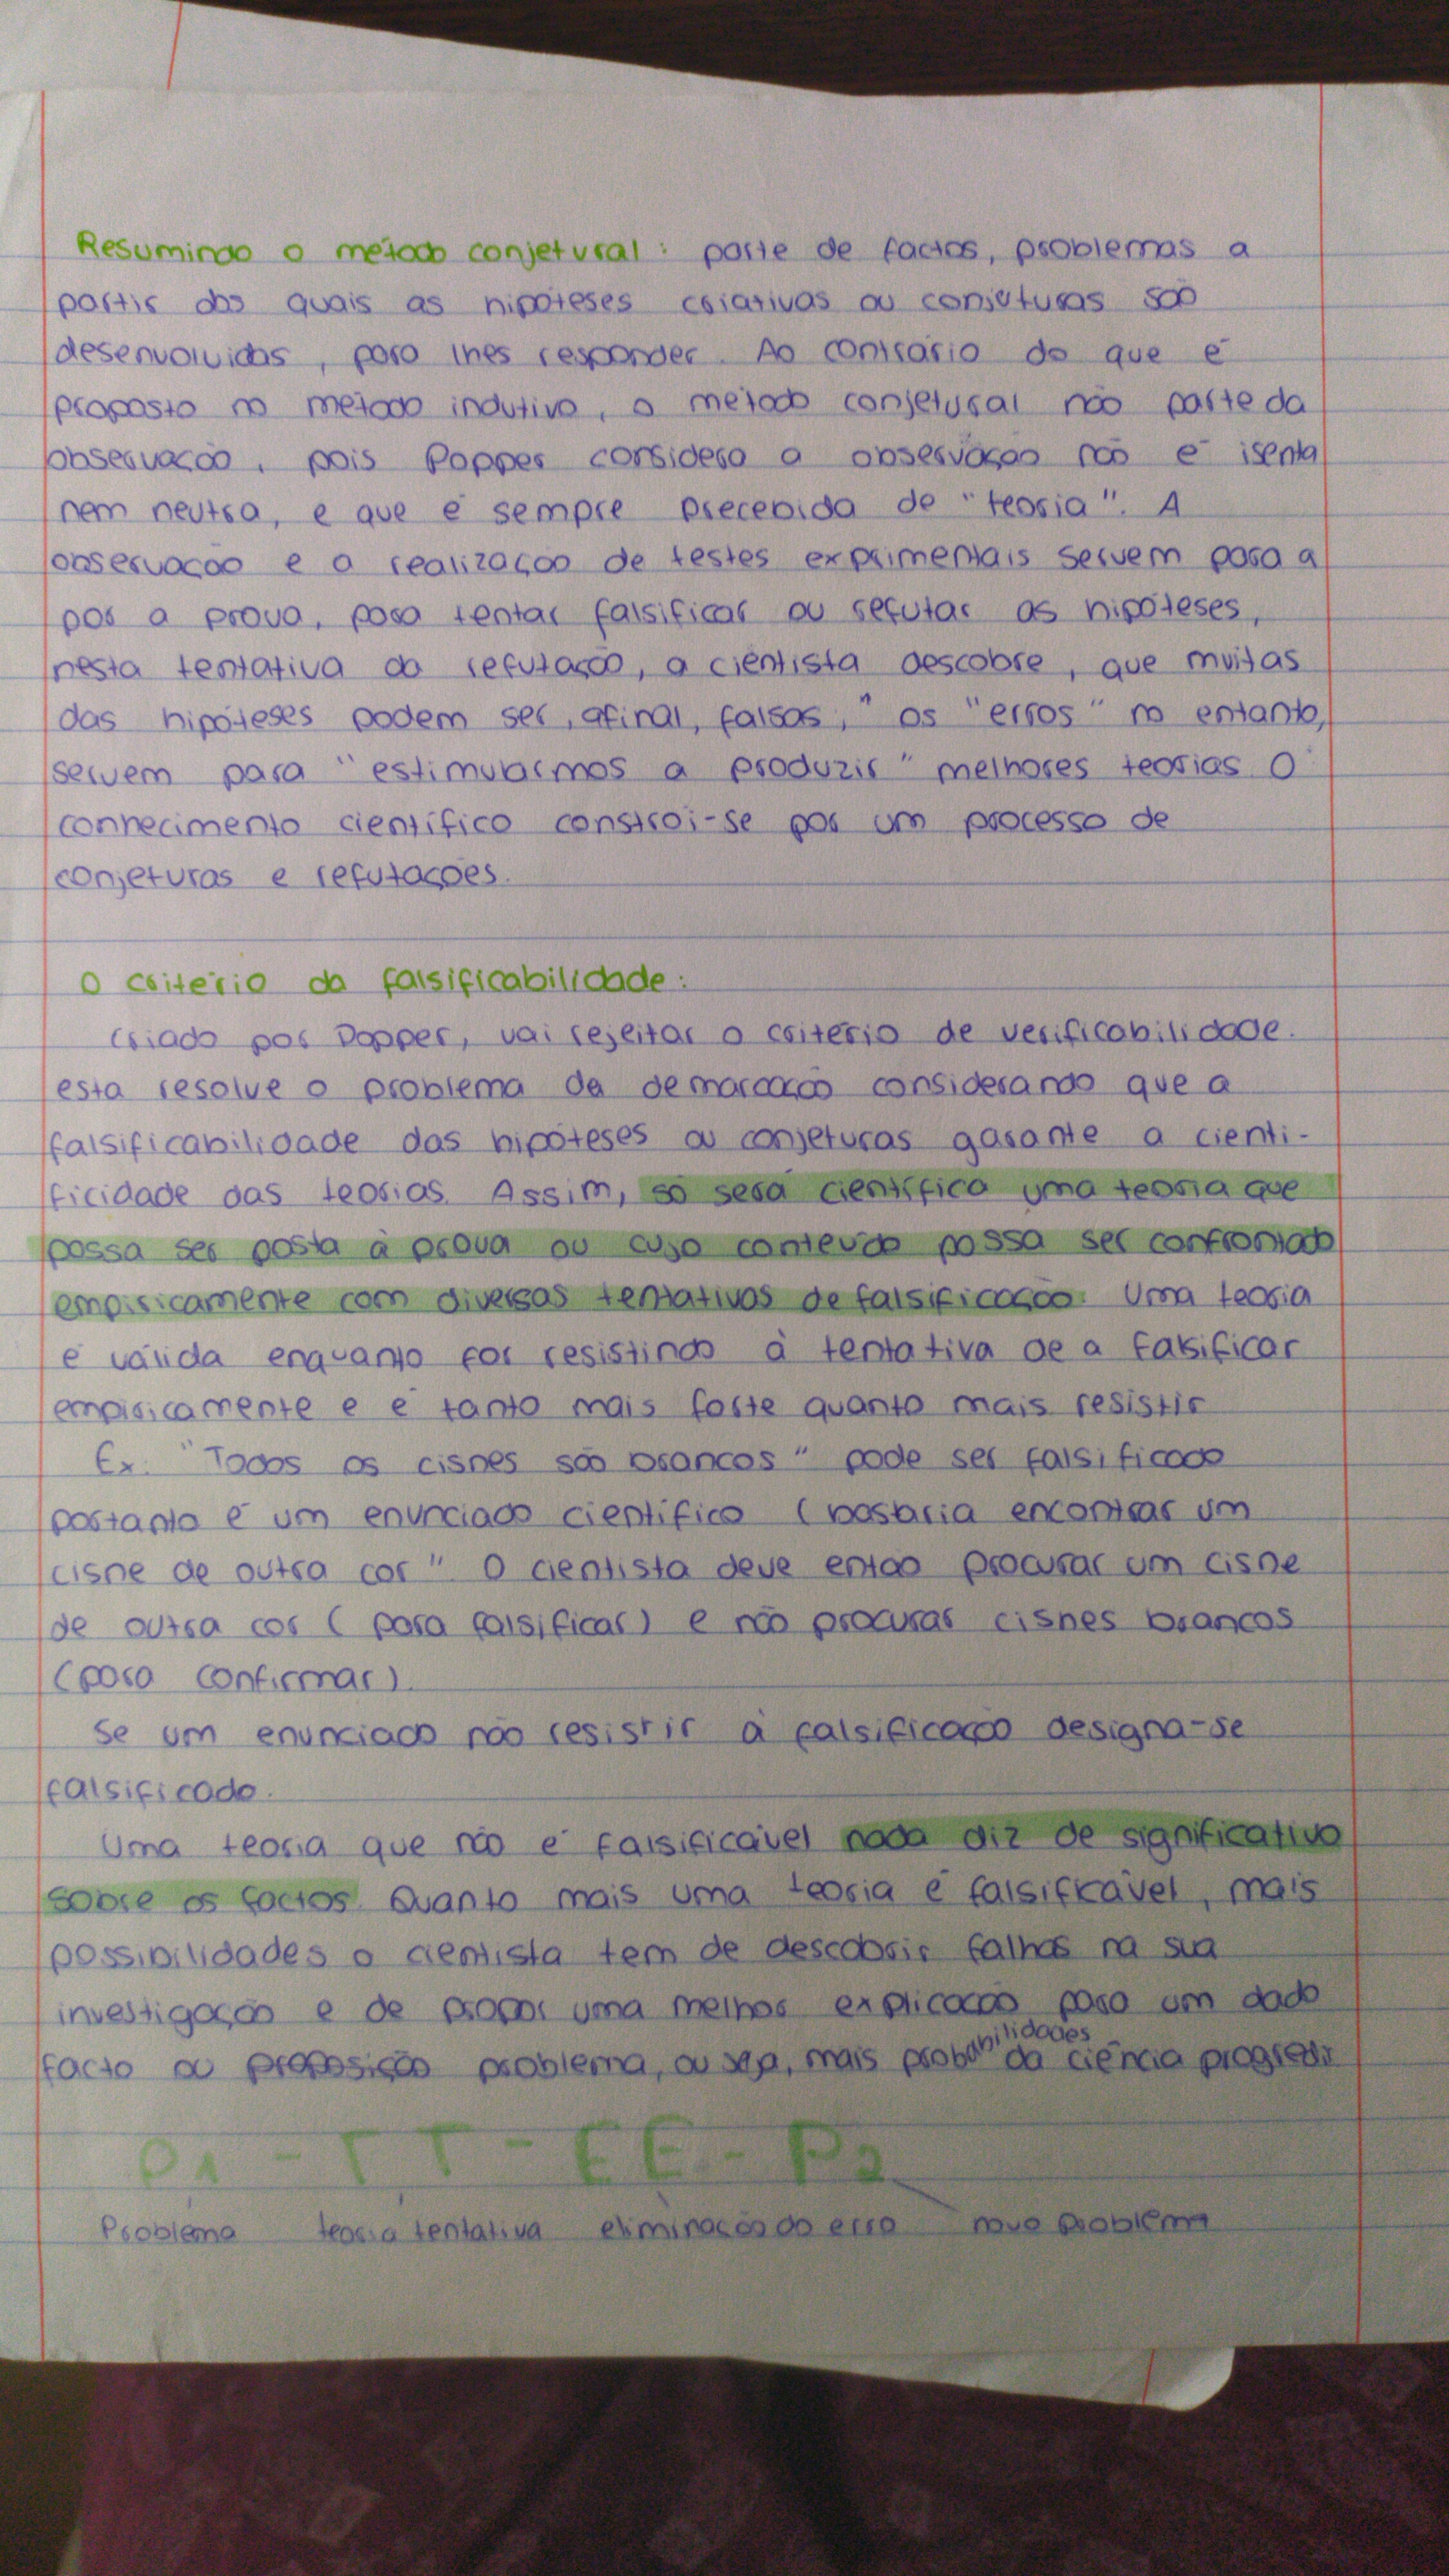 Resumindo o método conjetural: parte de factos, problemas a
partir dos quais as hipóteses criativas ou conjeturas são
desenvolvidas, para lhes responder. Ao contrário do que é
proposto no método indutivo, o método conjetural não parte da
observação, pois Popper considera a observação não é isenta
nem neutra, e que é sempre precedida de "teoria". A
observação e a realização de testes exprimentais servem para a
por a prova, para tentar falsificar ou refutar as hipóteses,
nesta tentativa da refutação, o cientista descobre, que muitas
das hipóteses podem ser, afinal, falsas, " os "erros" no entanto,
servem para "estimularmos a produzir" melhores teorias O
conhecimento científico constroi-se por um processo de
conjeturas e refutações.
O critério da falsificabilidade:
Criado por Popper, vai rejeitar o critério de verificabilidade.
esta resolve o problema da demarcação considerando que a
falsificabilidade das hipóteses ou conjeturas garante a cienti-
ficidade das teorias. Assim, só será científica uma teoria que
possa ser posta à prova ou cujo conteúdo possa ser confrontado
empiricamente com diversas tentativas de falsificação. Uma teoria
é válida enquanto for resistindo à tentativa de a falsificar
empiricamente e é tanto mais forte quanto mais resistir
Ex. "Todos os cisnes são brancos" pode ser falsificado
portanto é um enunciado científico (bastaria encontrar um
cisne de outra cor" O cientista deve então procurar um cisne
de outra cor (para falsificar) e não procurar cisnes brancos
(para confirmar).
Se um enunciado não resistir à falsificação designa-se
falsificado.
Uma teoria que não é falsificável nada diz de significativo
sobre os factos. Quanto mais uma teoria é falsificável, mais
possibilidades o cientista tem de descobrir falhas na sua
investigação e de propor uma melhor explicação para um dado
facto ou proposição problema, ou seja, mais probabilidades da ciência progredir
P1 - TT - EE - P2
Problema teoria tentativa eliminação do erro novo problema